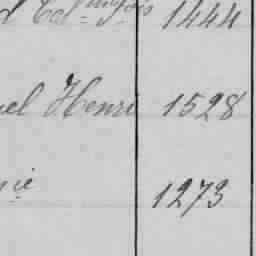 1444
el Henri 1528
ie 1273